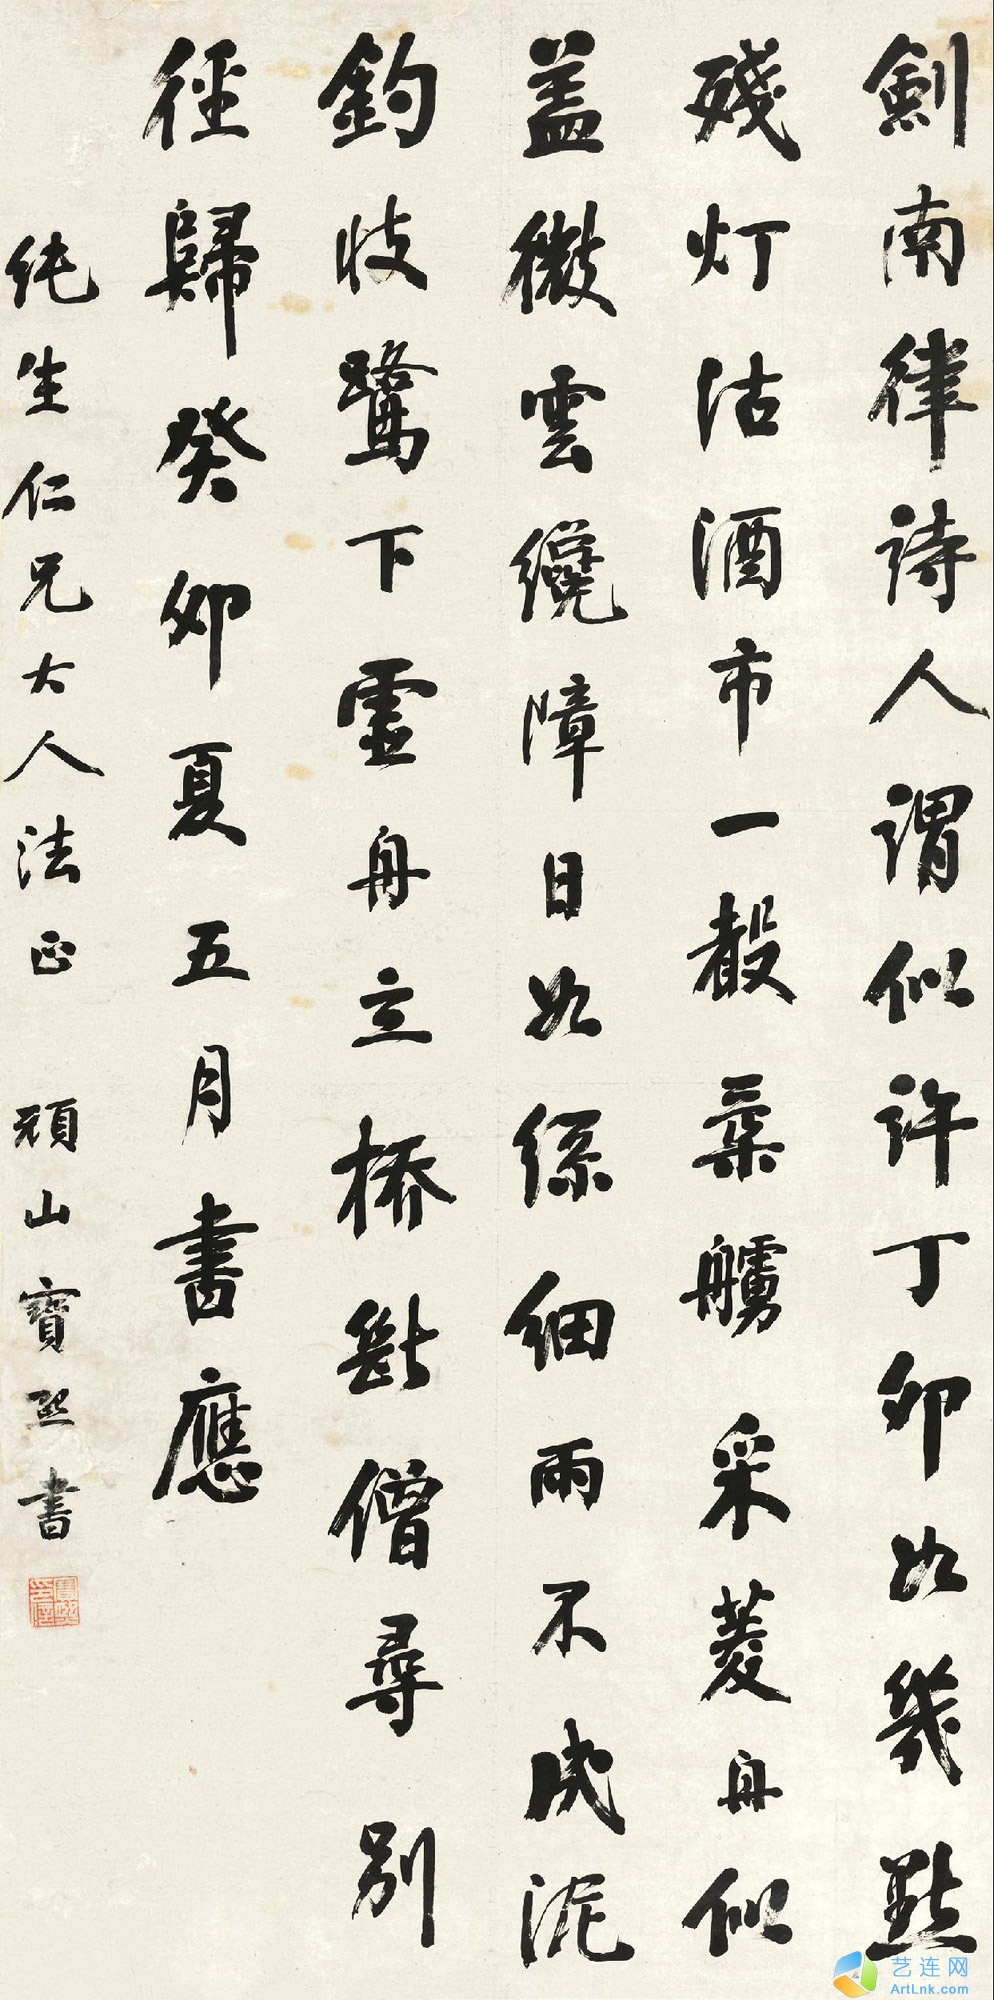 劍南律詩人謂似許丁卯如幾點
殘灯沽酒市一聲柔艣采菱舟似
盖微雲纔障日如絲細雨不成泥
釣歧鷺下虚舟立橋斷僧尋別
徑歸癸卯夏五月書應
純生仁兄大人法正 頑山寶熙書
艺连网
ArtLnk.com